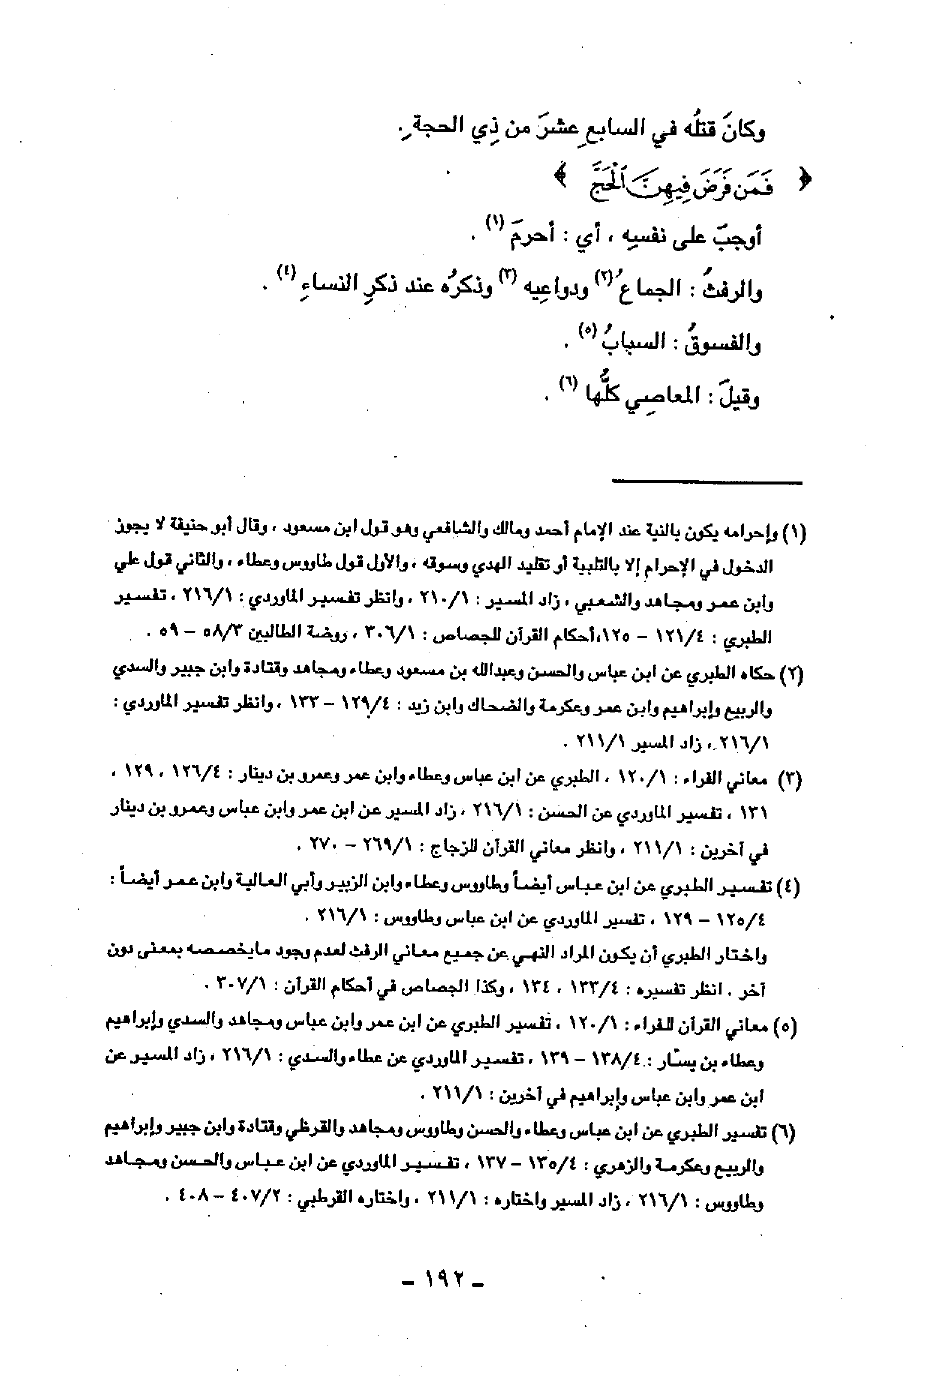 وكانَ قتلُه في السابعِ عشرَ من ذِي الحجةِ.
﴿ فَمَن فَرَضَ فِيهِنَّ ٱلْحَجَّ ﴾
أوجبَ على نفسِه ، أي : أحرمَ (١) .
والرفثُ : الجماعُ (٢) ودواعِيه (٣) وذكرُه عند ذكرِ النساءِ (٤) .
والفسوقُ : السبابُ (٥) .
وقيلَ : المعاصِي كلُّها (٦) .
(١) وإحرامه يكون بالنية عند الإمام أحمد ومالك والشافعي وهو قول ابن مسعود ، وقال أبو حنيفة لا يجوز
الدخول في الإحرام إلا بالتلبية أو تقليد الهدي وسوقه ، والأول قول طاووس وعطاء ، والثاني قول علي
وابن عمر ومجاهد والشعبي ، زاد المسير : ٢١٠/١ ، وانظر تفسير الماوردي : ٢١٦/١ ، تفسير
الطبري : ١٢١/٤ – ١٢٥،أحكام القرآن للجصاص : ٣٠٦/١ ، روضة الطالبين ٥٨/٣ – ٥٩ .
(٢) حكاه الطبري عن ابن عباس والحسن وعبدالله بن مسعود وعطاء ومجاهد وقتادة وابن جبير والسدي
والربيع وإبراهيم وابن عمر وعكرمة والضحاك وابن زيد : ١٢٩/٤ – ١٣٣ ، وانظر تفسير الماوردي :
٢١٦/١ ، زاد المسير ٢١١/١ .
(٣) معاني الفراء : ١٢٠/١ ، الطبري عن ابن عباس وعطاء وابن عمر وعمرو بن دينار : ١٢٦/٤ ، ١٢٩ ،
١٣١ ، تفسير الماوردي عن الحسن : ٢١٦/١ ، زاد المسير عن ابن عمر وابن عباس وعمرو بن دينار
في آخرين : ٢١١/١ ، وانظر معاني القرآن للزجاج : ٢٦٩/١ – ٢٧٠ .
(٤) تفسير الطبري عن ابن عباس أيضاً وطاووس وعطاء وابن الزبير وأبي العالية وابن عمر أيضاً :
١٢٥/٤ – ١٢٩ ، تفسير الماوردي عن ابن عباس وطاووس : ٢١٦/١ .
واختار الطبري أن يكون المراد النهي عن جميع معاني الرفث لعدم وجود مايخصصه بمعنى دون
آخر . انظر تفسيره : ١٣٣/٤ ، ١٣٤ ، وكذا الجصاص في أحكام القرآن : ٣٠٧/١ .
(٥) معاني القرآن للفراء : ١٢٠/١ ، تفسير الطبري عن ابن عمر وابن عباس ومجاهد والسدي وإبراهيم
وعطاء بن يسّار : ١٣٨/٤ – ١٣٩ ، تفسير الماوردي عن عطاء والسدي : ٢١٦/١ ، زاد المسير عن
ابن عمر وابن عباس وإبراهيم في آخرين : ٢١١/١ .
(٦) تفسير الطبري عن ابن عباس وعطاء والحسن وطاووس ومجاهد والقرظي وقتادة وابن جبير وإبراهيم
والربيع وعكرمة والزهري : ١٣٥/٤ – ١٣٧ ، تفسير الماوردي عن ابن عباس والحسن ومجاهد
وطاووس : ٢١٦/١ ، زاد المسير واختاره : ٢١١/١ ، واختاره القرطبي : ٤٠٧/٢ – ٤٠٨ .
– ١٩٢ –